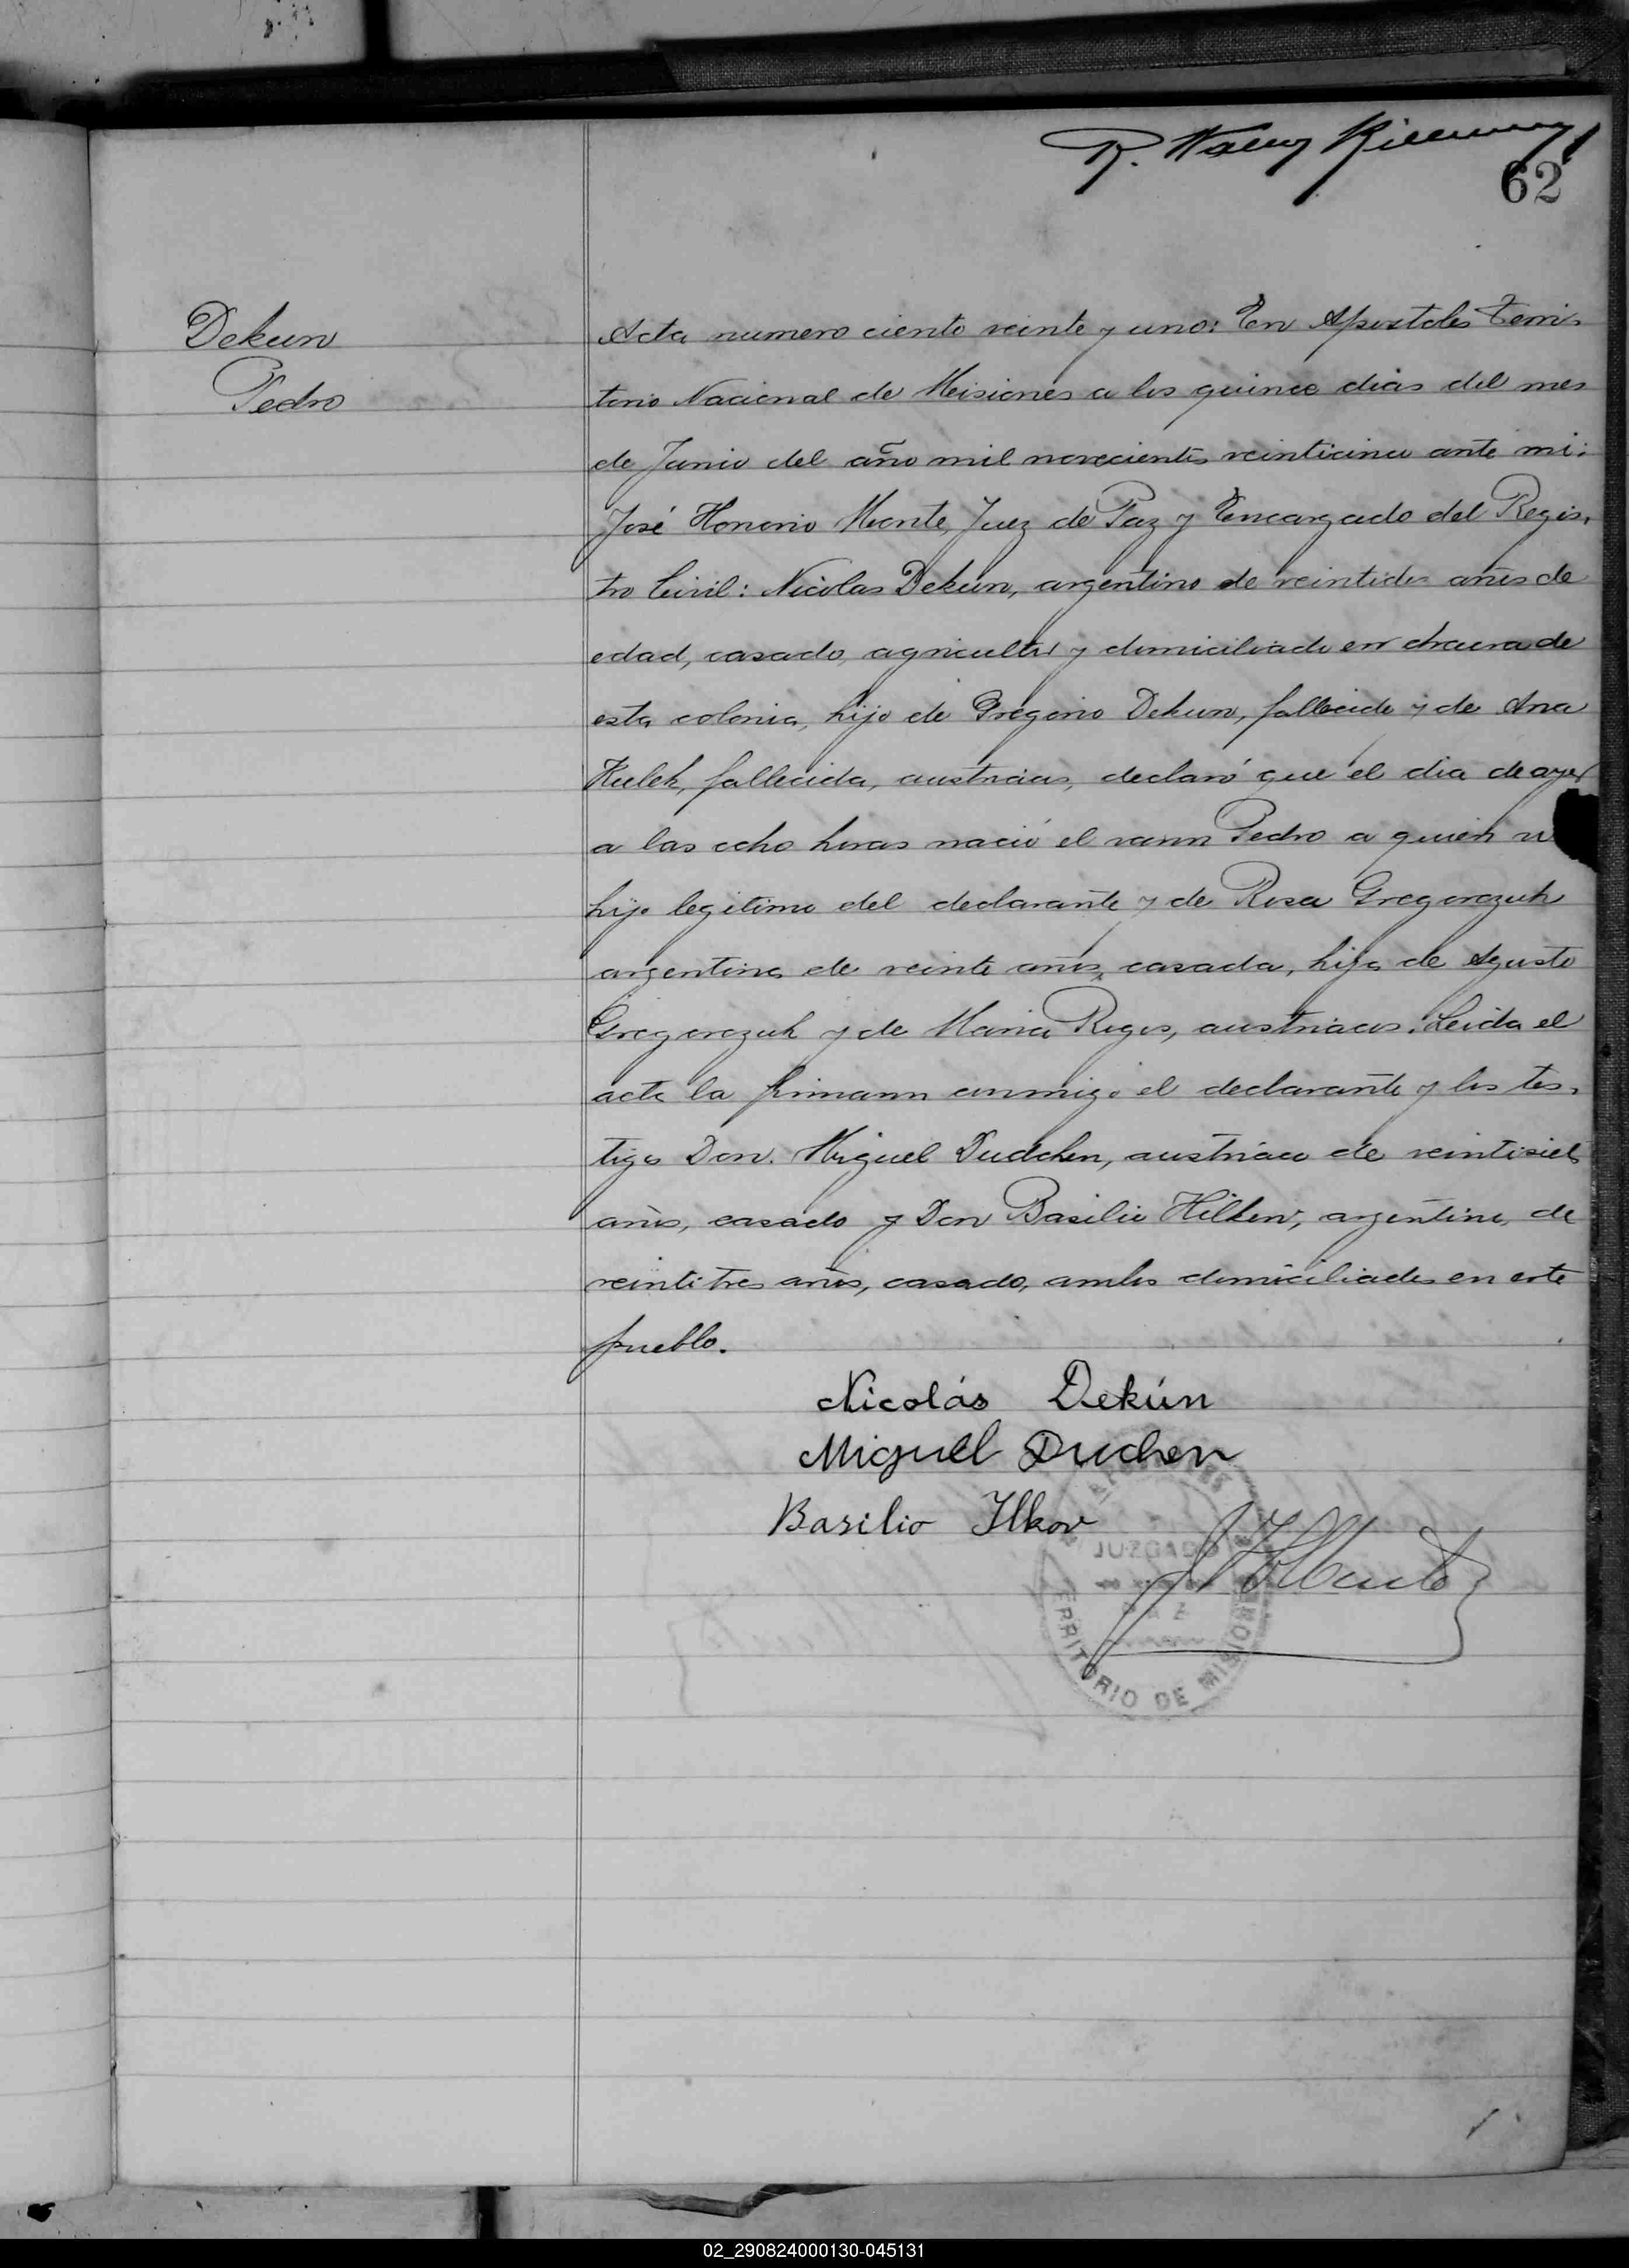 62
Dekun
Pedro
Acta numero ciento veinte y uno: En Apostoles Terri-
torio Nacional de Misiones a los quince dias del mes
de Junio del año mil novecientos veinticinco ante mi:
José Honorio Monte, Juez de Paz y Encargado del Regis-
tro Civil: Nicolas Dekun, argentino de veintidos años de
edad, casado, agricultor y domiciliado en chacra de
esta colonia, hijo de Gregorio Dekun, fallecido y de Ana
Kulek, fallecida, austriacos, declaró que el dia de ayer
a las ocho horas nació el varon Pedro a quien
hijo legitimo del declarante y de Rosa Gregorczuk
argentina de veinte años, casada, hija de Agusto
Gregorczuk y de Maria Reges, austriacos. Leida el
acta la firmaron conmigo el declarante y los tes-
tigos Don. Miguel Dudchen, austriaco de veintisiete
años, casado y Don Basilio Hilkow, argentino, de
veintitres años, casado, ambos domiciliados en este
pueblo.
Nicolás Dekún
Miguel Duchen
Basilio Ilkow
JUZGADO
PAZ
TERRITORIO DE MISIONES
02_290824000130-045131